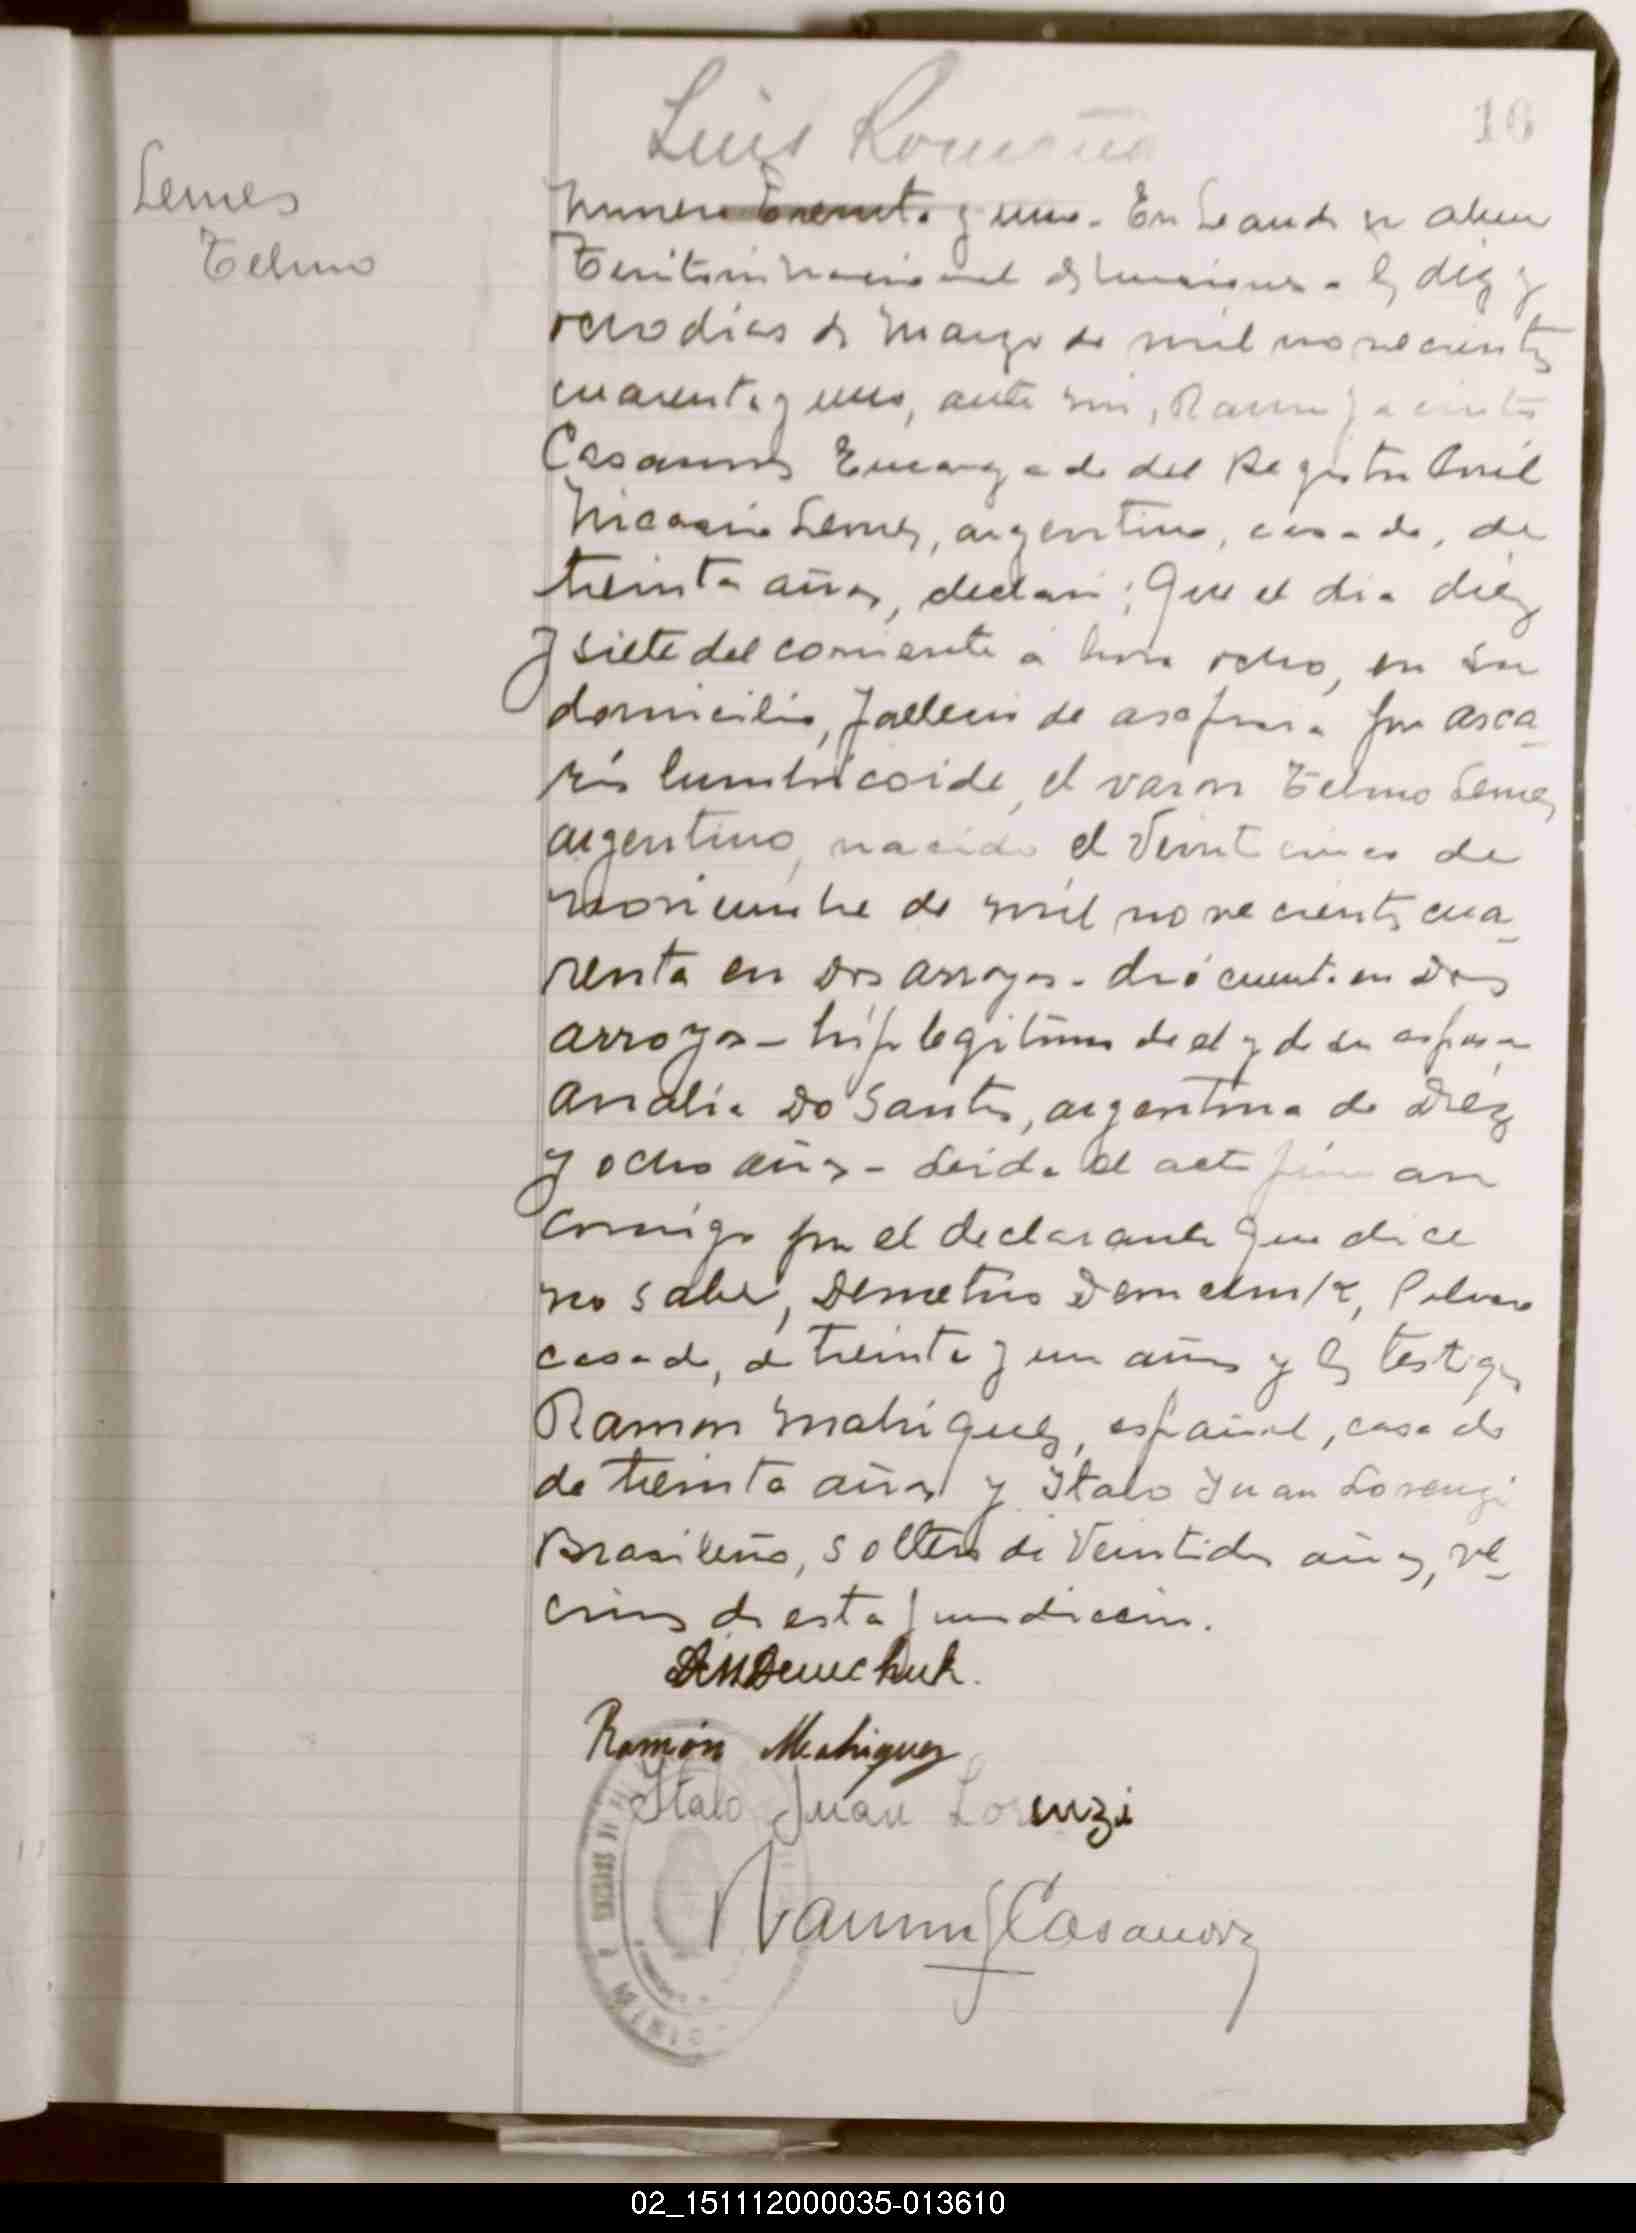 Luis Romeña
16
Lemes
Telmo
Numero Treinta y uno. En Leandro N Alem
Territorio Nacional de Misiones a los diez y
ocho dias de Marzo de mil novecientos
cuarenta y uno, ante mi, Ramon Jacinto
Casanova Encargado del Registro Civil
Nicasio Lemes, argentino, casado, de
treinta años, declaró; Que el dia diez
y siete del corriente a hora ocho, en su
domicilio, falleció de asfixia por asca-
ris lumbricoide, el varon Telmo Lemes
argentino, nacido el veinticinco de
noviembre de mil novecientos cua-
renta en Dos arroyos - dió cuenta en Dos
arroyos - hijo legitimo de el y de su esposa
Analia Do Santos, argentina de Diez
y ocho años - Leida el acta firman
conmigo por el declarante que dice
no saber, Demetrio Demchuk, Polaco
casado, de treinta y un años y los testigos
Ramon Mahiques, español, casado
de treinta años y Italo Juan Lorenzi
Brasileño, soltero de veintidos años, ve-
cinos de esta jurisdiccion.
Demchuk.
Ramón Mahiques
Italo Juan Lorenzi
Ramon J Casanova
02_151112000035-013610